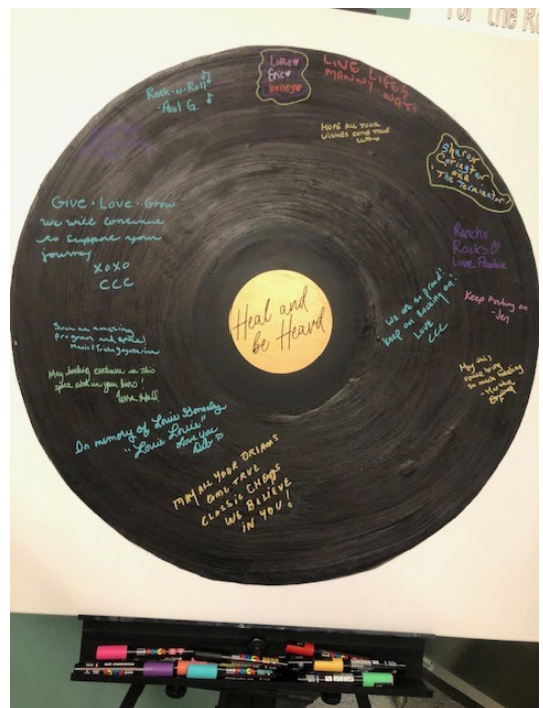 for the Re
Rock-N-Roll
-Paul G.
Lottie
Eric
Kelley
LIVE LIFE
MANNY NATI
HOPE ALL YOUR
WISHES COME TRUE
Sharon
Covington
AKA
"The Terminator"
Give · Love · Grow
we will continue
to support your
journey.
XOXO
CCC
Rancho
Rocks
Love, Pauline
Keep Rocking on
-Jen
We are so proud!
Keep on rocking on!
Love
CCC
Heal and
be Heard
Such an amazing
program and space!
May healing continue in this
space and in your lives!
May this
space bring
so much healing
In memory of Louie Gonzalez
"Louie Louie"
Love you
Deb
MAY ALL YOUR DREAMS
COME TRUE
CLASSIC CHEVYS
WE BELIEVE
IN YOU!